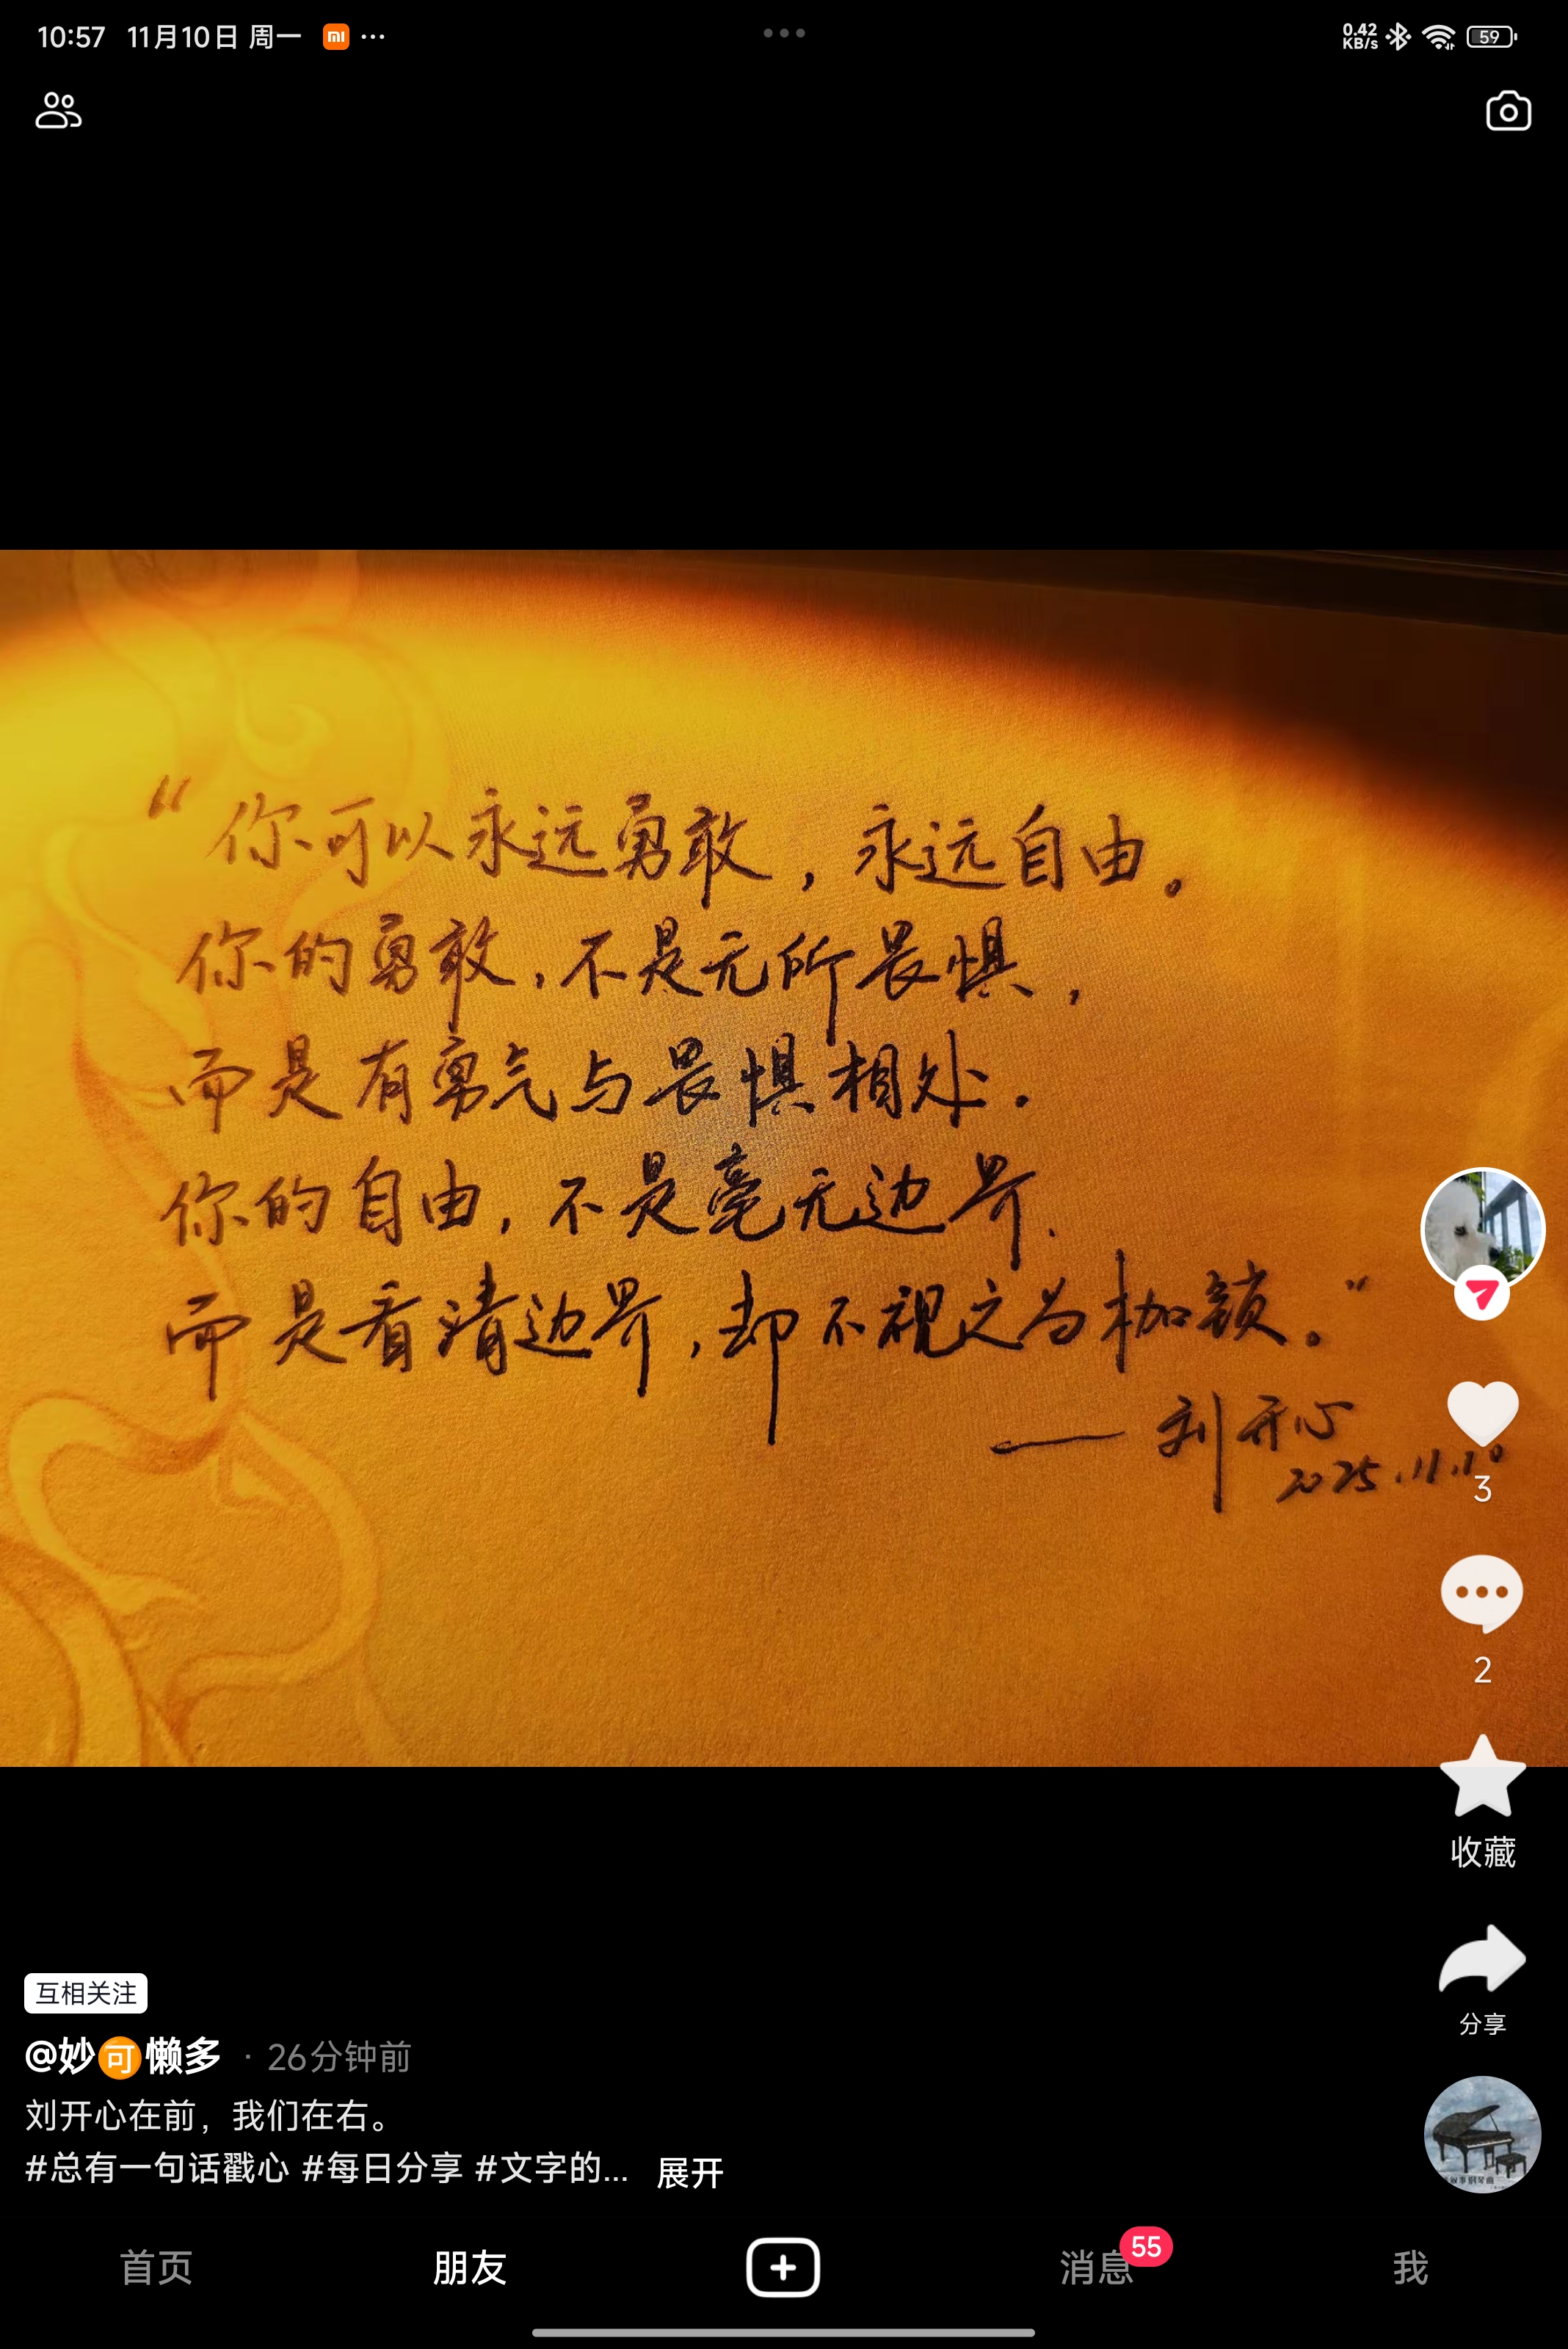 10:57 11月10日 周一
0.42 KB/s
59
“你可以永远勇敢，永远自由。
你的勇敢，不是无所畏惧，
而是有勇气与畏惧相处.
你的自由，不是毫无边界.
而是看清边界，却不视之为枷锁。”
——刘开心
2025.11.10
3
2
收藏
分享
互相关注
@妙可懒多 · 26分钟前
刘开心在前，我们在右。
#总有一句话戳心 #每日分享 #文字的... 展开
首页 朋友 消息 55 我